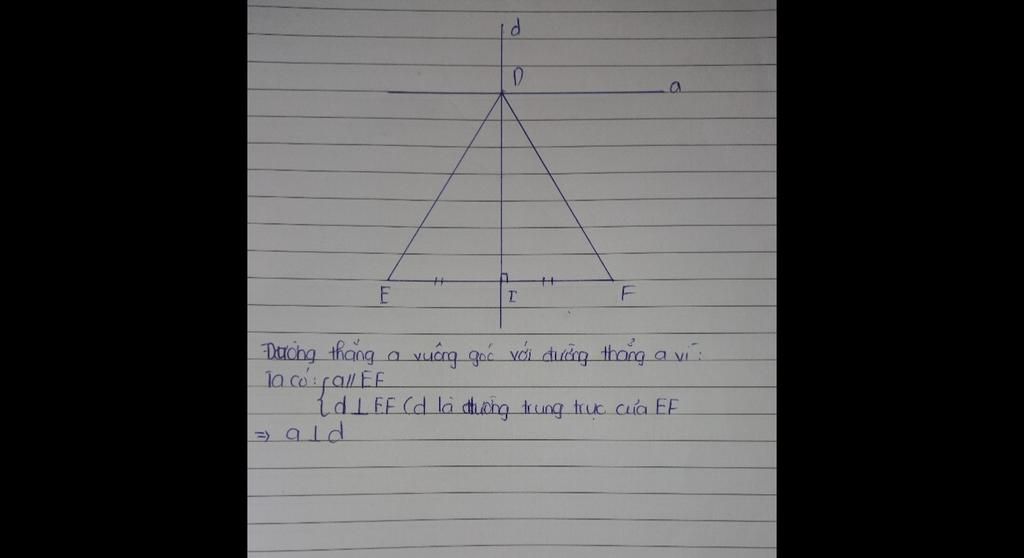 d
D
a
E
I
F
Đường thẳng a vuông góc với đường thẳng a vì:
Ta có: { a // EF
{ d ⊥ EF (d là đường trung trực của EF
⇒ a ⊥ d